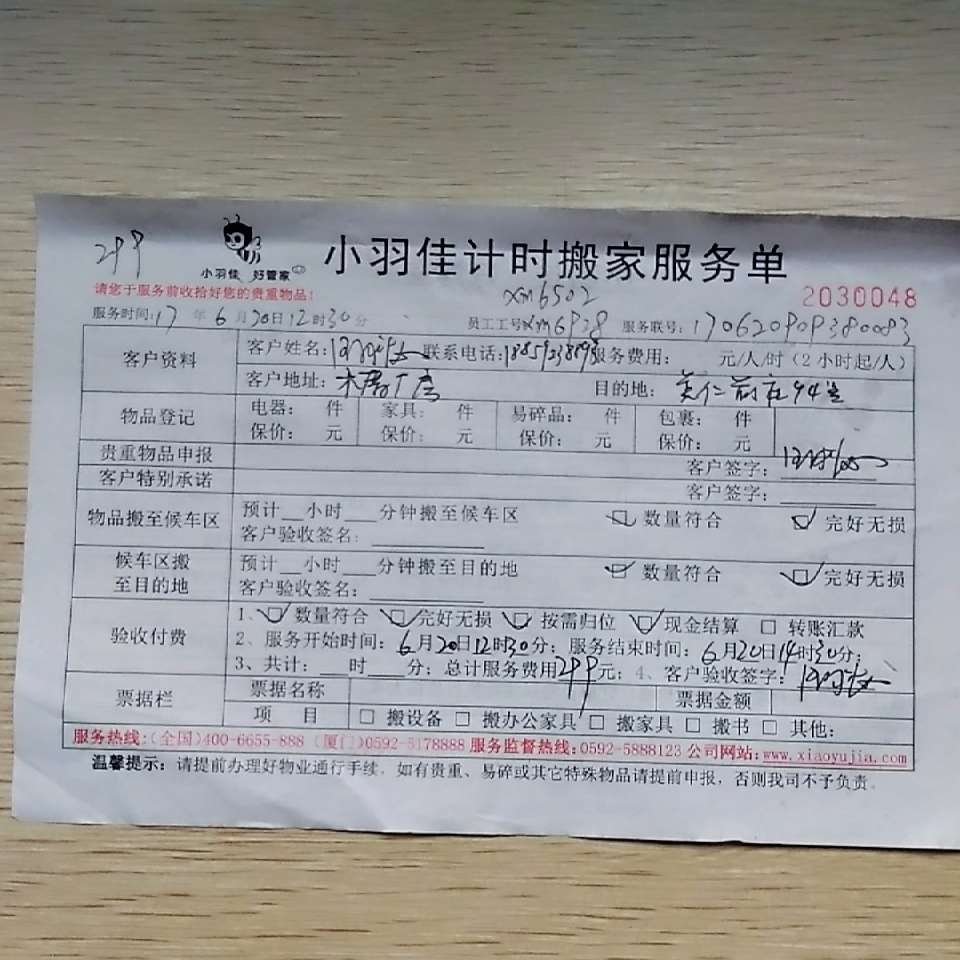 299
小羽佳 好管家
小羽佳计时搬家服务单
请您于服务前收拾好您的贵重物品!
xm6502
2030048
服务时间:17年6月20日12时30分 员工工号xm6928 服务联号:170620909380083
客户资料
客户姓名: 联系电话: 服务费用: 元/人/时(2小时起/人)
客户地址: 厂房 目的地:
物品登记
电器: 件 家具: 件 易碎品: 件 包裹: 件
保价: 元 保价: 元 保价: 元 保价: 元
贵重物品申报 客户签字:
客户特别承诺 客户签字:
物品搬至候车区
预计__小时___分钟搬至候车区 数量符合 完好无损
客户验收签名:
候车区搬至目的地
预计__小时___分钟搬至目的地 数量符合 完好无损
客户验收签名:
验收付费
1、数量符合 完好无损 按需归位 现金结算 转账汇款
2、服务开始时间:6月20日12时30分;服务结束时间:6月20日14时30分;
3、共计:___时___分;总计服务费用299元;4、客户验收签字:
票据栏
票据名称 票据金额
项 目 搬设备 搬办公家具 搬家具 搬书 其他:
服务热线:(全国)400-6655-888 (厦门)0592-5178888 服务监督热线:0592-5888123 公司网站:www.xiaoyujia.com
温馨提示:请提前办理好物业通行手续,如有贵重、易碎或其它特殊物品请提前申报,否则我司不予负责。